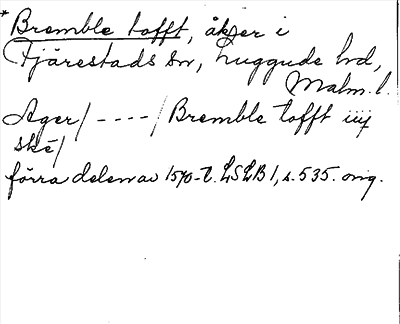 * Bremble tofft, åker i
Fjärestads sn, Luggude hd,
Malm. l.
Ager/ ----/ Bremble tofft iiij
ske/
förra delen av 1570-t. LSLB 1, s. 535. orig.